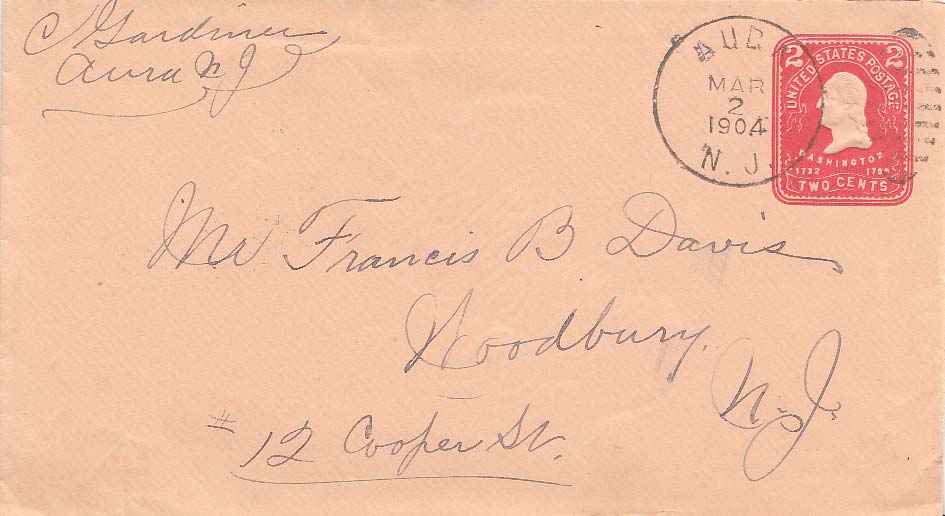 C Gardiner
Aura N J
MAR
2
1904
N. J.
2 2
UNITED STATES POSTAGE
WASHINGTON
1732 1799
TWO CENTS
Mr Francis B Davis
Woodbury.
N. J.
# 12 Cooper St.